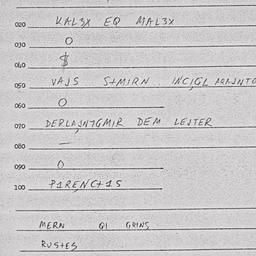 020 KAL3X EQ MAL3X
030 O
040 $
050 VAJS S+MIRN INCIGL
060 O
070 DERLAJN7GMIR DEM LEJTER
080 —
090 O
100 P1RENC+1S
MERN QI GRINS
RUS+ES